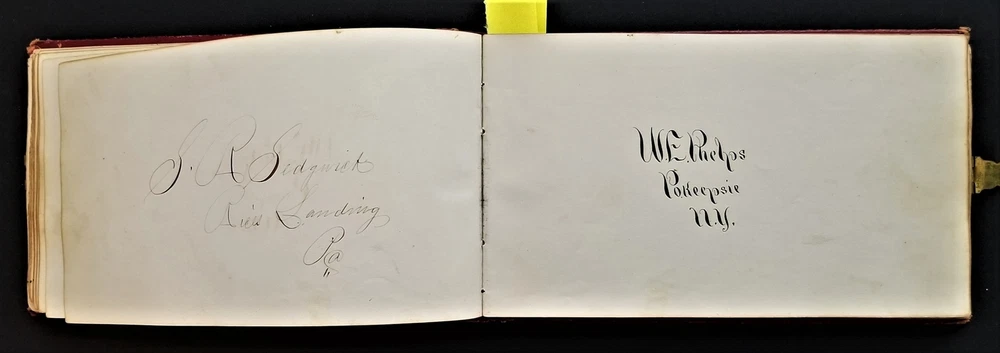 S. R. Sedgwick
Rices Landing
Pa
W.E. Phelps
Pokeepsie
N.Y.